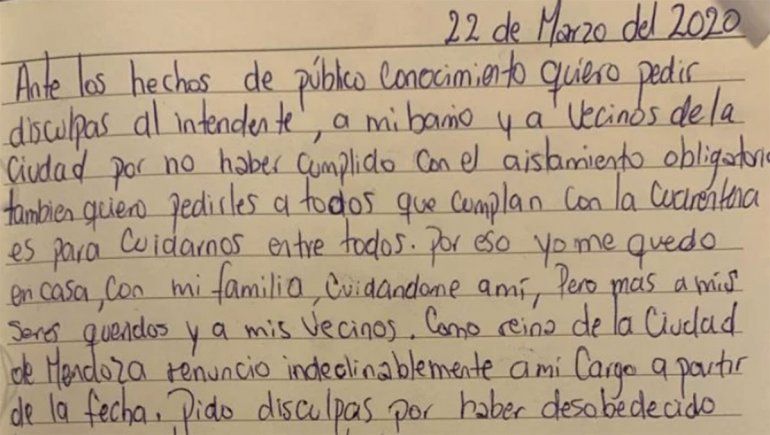 22 de Marzo del 2020
Ante los hechos de público Conocimiento quiero pedir
disculpas al intendente, a mi barrio y a Vecinos de la
Ciudad por no haber Cumplido Con el aislamiento obligatorio
tambien quiero pedirles a todos que cumplan con la Cuarentena
es para Cuidarnos entre todos. Por eso yo me quedo
en casa, con mi familia, Cuidandome a mí, Pero mas a mis
seres queridos y a mis Vecinos. Como reina de la Ciudad
de Mendoza renuncio indeclinablemente a mi Cargo a partir
de la fecha. Pido disculpas por haber desobedecido